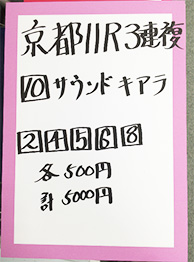 京都11R 3連複
10 サウンドキアラ
2 4 5 6 8
各500円
計5000円